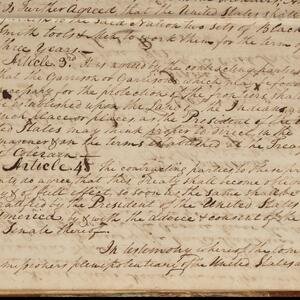 is Further Agreed that the United States shall
to the said Nation two Sets of Black
Smith tools & Men to work them for the term of
three years—
Article 3d. It is agreed by the contracting parties
that the Garrison or Garrisons which may be
necessary for the protection of the
be established upon the Land of the Indians
such place or places as the President of the
United States may think proper to direct in the
manner & on the terms established at the Treaty
of Coleraine—
Article 4th the contracting parties to these
do agree that this treaty shall become
of full effect so soon as the same shall be
ratified by the President of the United States of
America by & with the advice & consent of the
Senate thereof.
In testimony whereof the Com
missioners plenipotentiary of the United States